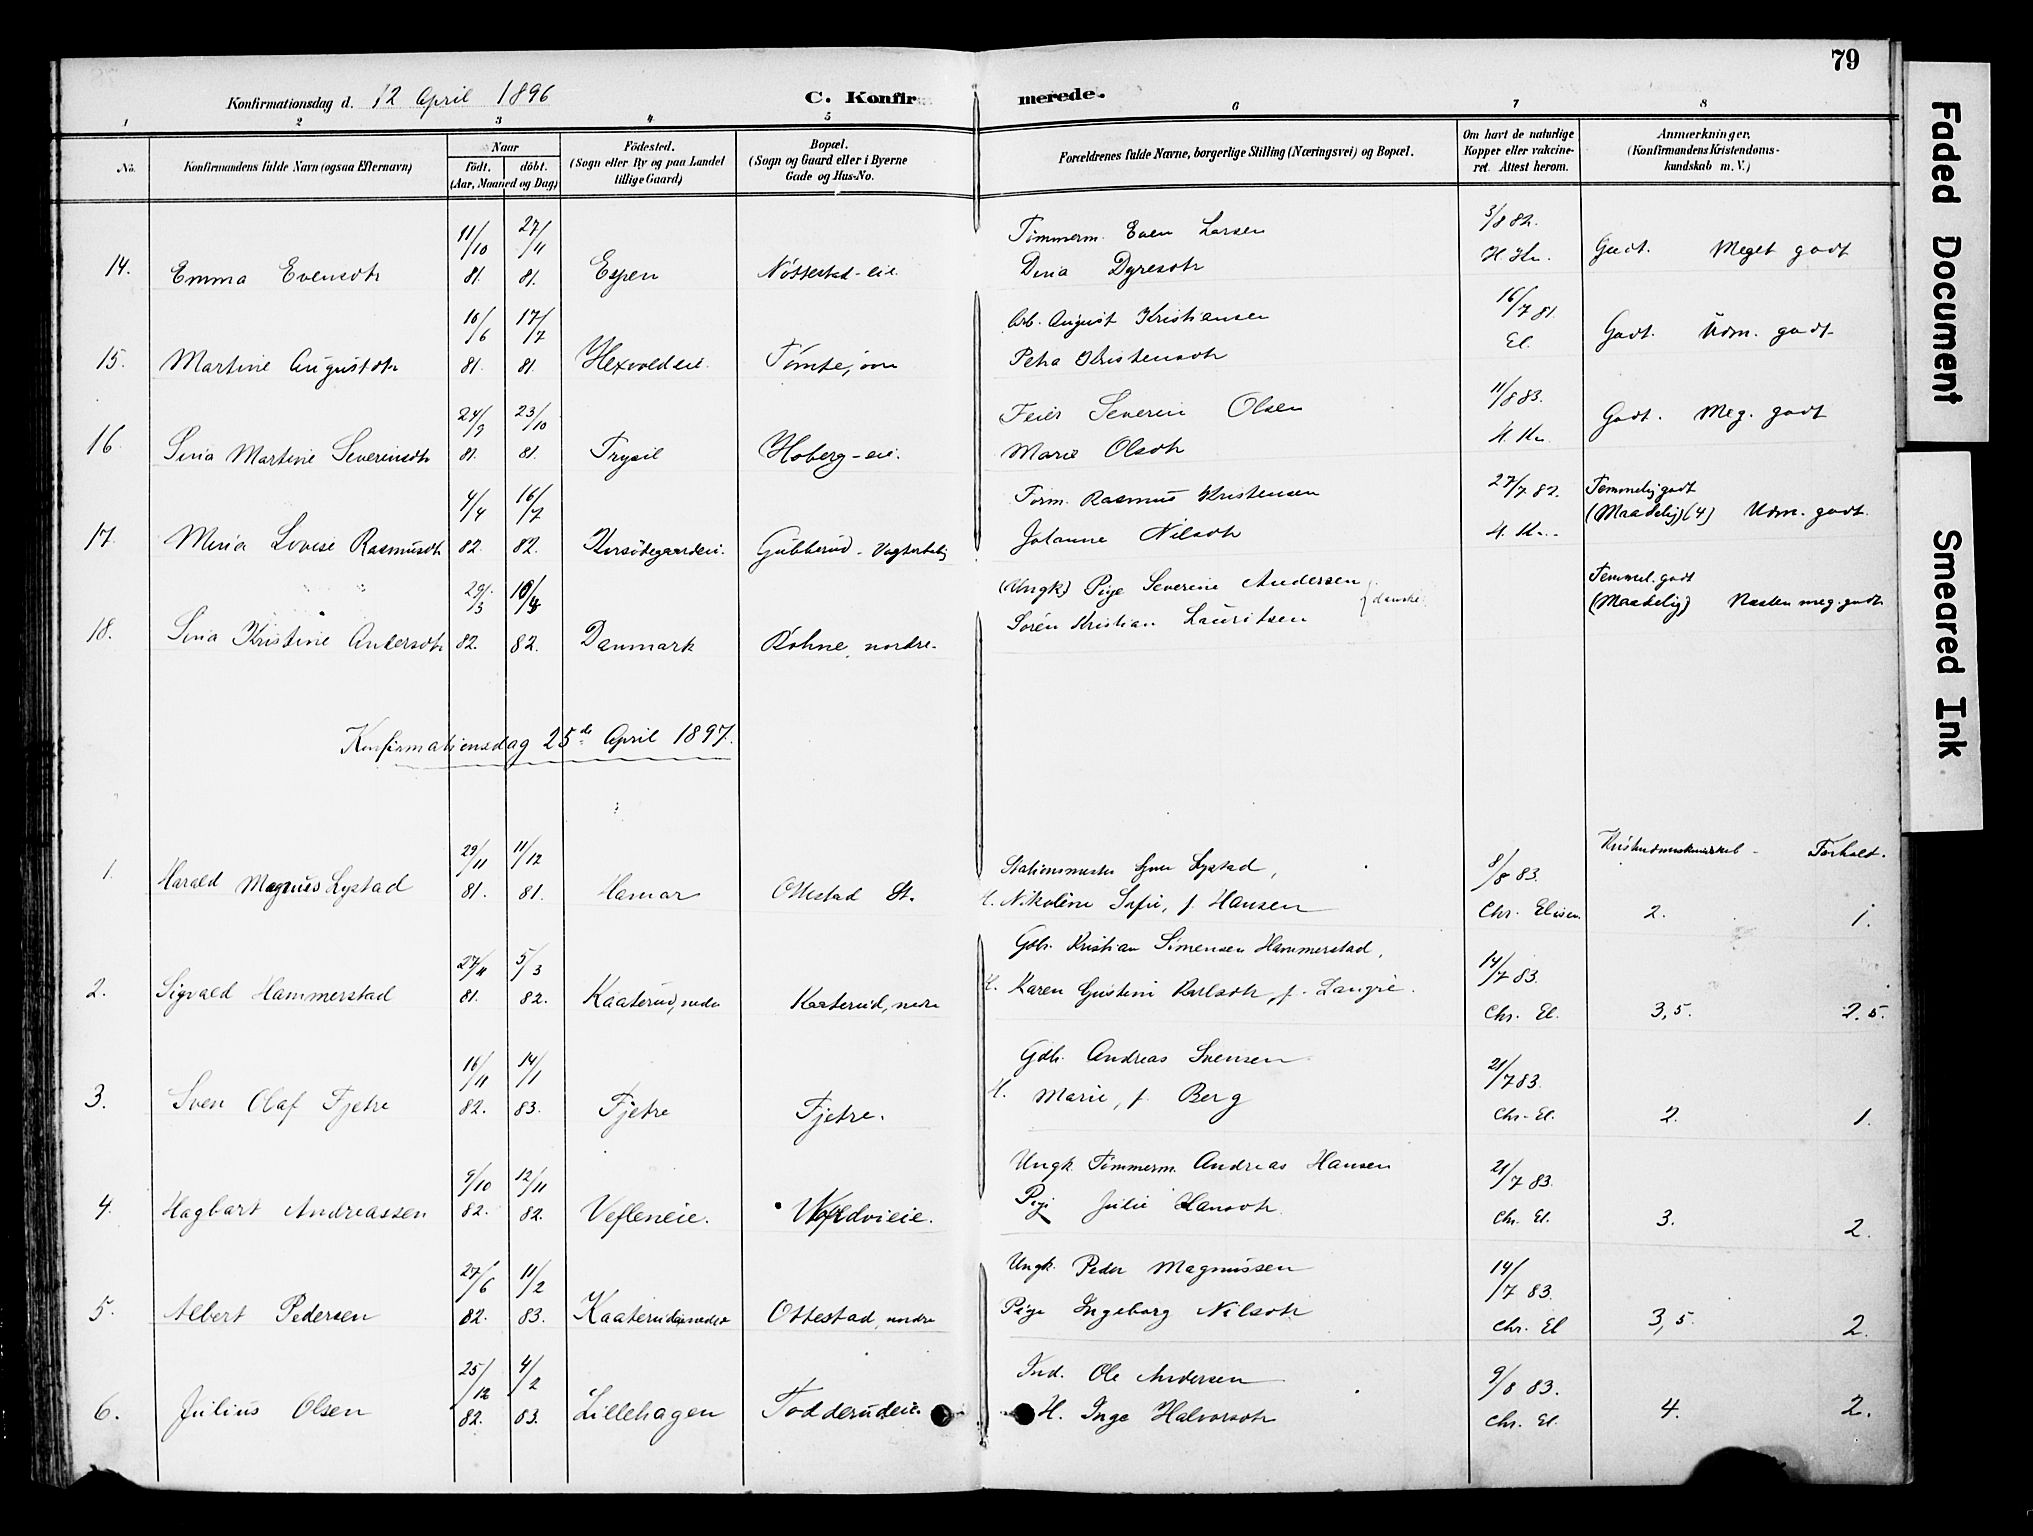 79
Konfirmationsdag d. 12 April 1896 C. Konfirmerede.
1 2 3 4 5 6 7 8
No. Konfirmandens fulde Navn (ogsaa Efternavn) Naar födt. döbt. (Aar, Maaned og Dag) Födested. (Sogn eller By og paa Landet tillige Gaard) Bopæl. (Sogn og Gaard eller i Byerne Gade og Hus-No. Forældrenes fulde Navne, borgerlige Stilling (Næringsvei) og Bopæl. Om havt de naturlige Kopper eller vakcineret. Attest herom. Anmærkninger. (Konfirmandens Kristendomskundskab m. V.)
11/10 27/11 Tømmerm. Even Larsen 3/8 82.
14. Emma Evensdtr 81. 81. Espen Nøttestad-eie Dina Dyresdtr Godt. Meget godt
10/6 17/7 Arb. August Kristiansen 16/7 81.
15. Martine Augustdtr 81. 81. Hexvoldeie. Tomte, Petra Kristensdtr El. Godt. Udm. godt
24/9 23/10 Feier Severin Olsen 11/8 83.
16 Sina Martine Severinsdtr 81. 81. Trysil Hoberg-eie. Marie Olsdtr Godt. Meg. godt
4/4 16/7 Form. Rasmus Kristensen 27/7 82. Temmelig godt
17. Mina Lovise Rasmusdtr 82. 82. Korsødegaardeie. Gubberud - Johanne Nilsdtr (Maadelig) (4) Udm. godt.
29/3 (Ungk) Pige Severine Andersen Temmel. godt
18. Sina Kristine Andersdtr 82. 82. Danmark nordre. Sören Kristian Lauritsen danske (Maadelig) Næsten meg. godt
Konfirmationsdag 25de April 1897.
Kristendomskundskab - Forhold.
29/11 11/12 Stationsmester Lystad, 8/8 83.
1. Harald Magnus Lystad 81. 81. Hamar Ottestad St. H. Nikoline Sofie, f. Hansen Chr. Elisen 2. 1.
27/11 5/3 Gbr. Kristian Simensen Hammerstad, 14/7 83.
2. Sigvald Hammerstad 81. 82. Kaaterud, nedre Kaaterud, nedre H. Karen Gustine Karlsdtr, f. Chr. El. 3,5. 2.5.
16/11 14/1 Gbr. Andreas Svensen 21/7 83.
3. Sven Olaf Fjetre 82. 83. Fjetre Fjetre. H. Marie, f. Berg Chr. El. 2. 1.
9/10 12/11 Ungk. Tømmerm. Andreas Hansen 21/7 83.
4. Hagbart Andreassen 82. 82. Vefleneie. Pige Julie Hansdtr. Chr. El. 3. 2.
27/6 11/2 Ungk. Peder Magnussen 14/7 83.
5. Albert Pedersen 82. 83. Kaaterudeie nedre Ottestad, nordre Pige Ingeborg Nilsdtr Chr. El 3,5. 2.
25/12 4/2 Ind. Ole Andersen 9/8 83.
6. Julius Olsen 82. 83. Lillehagen Todderudeie. H. Inge Halvorsdtr Chr. El. 4. 2.
Faded Document
Smeared Ink